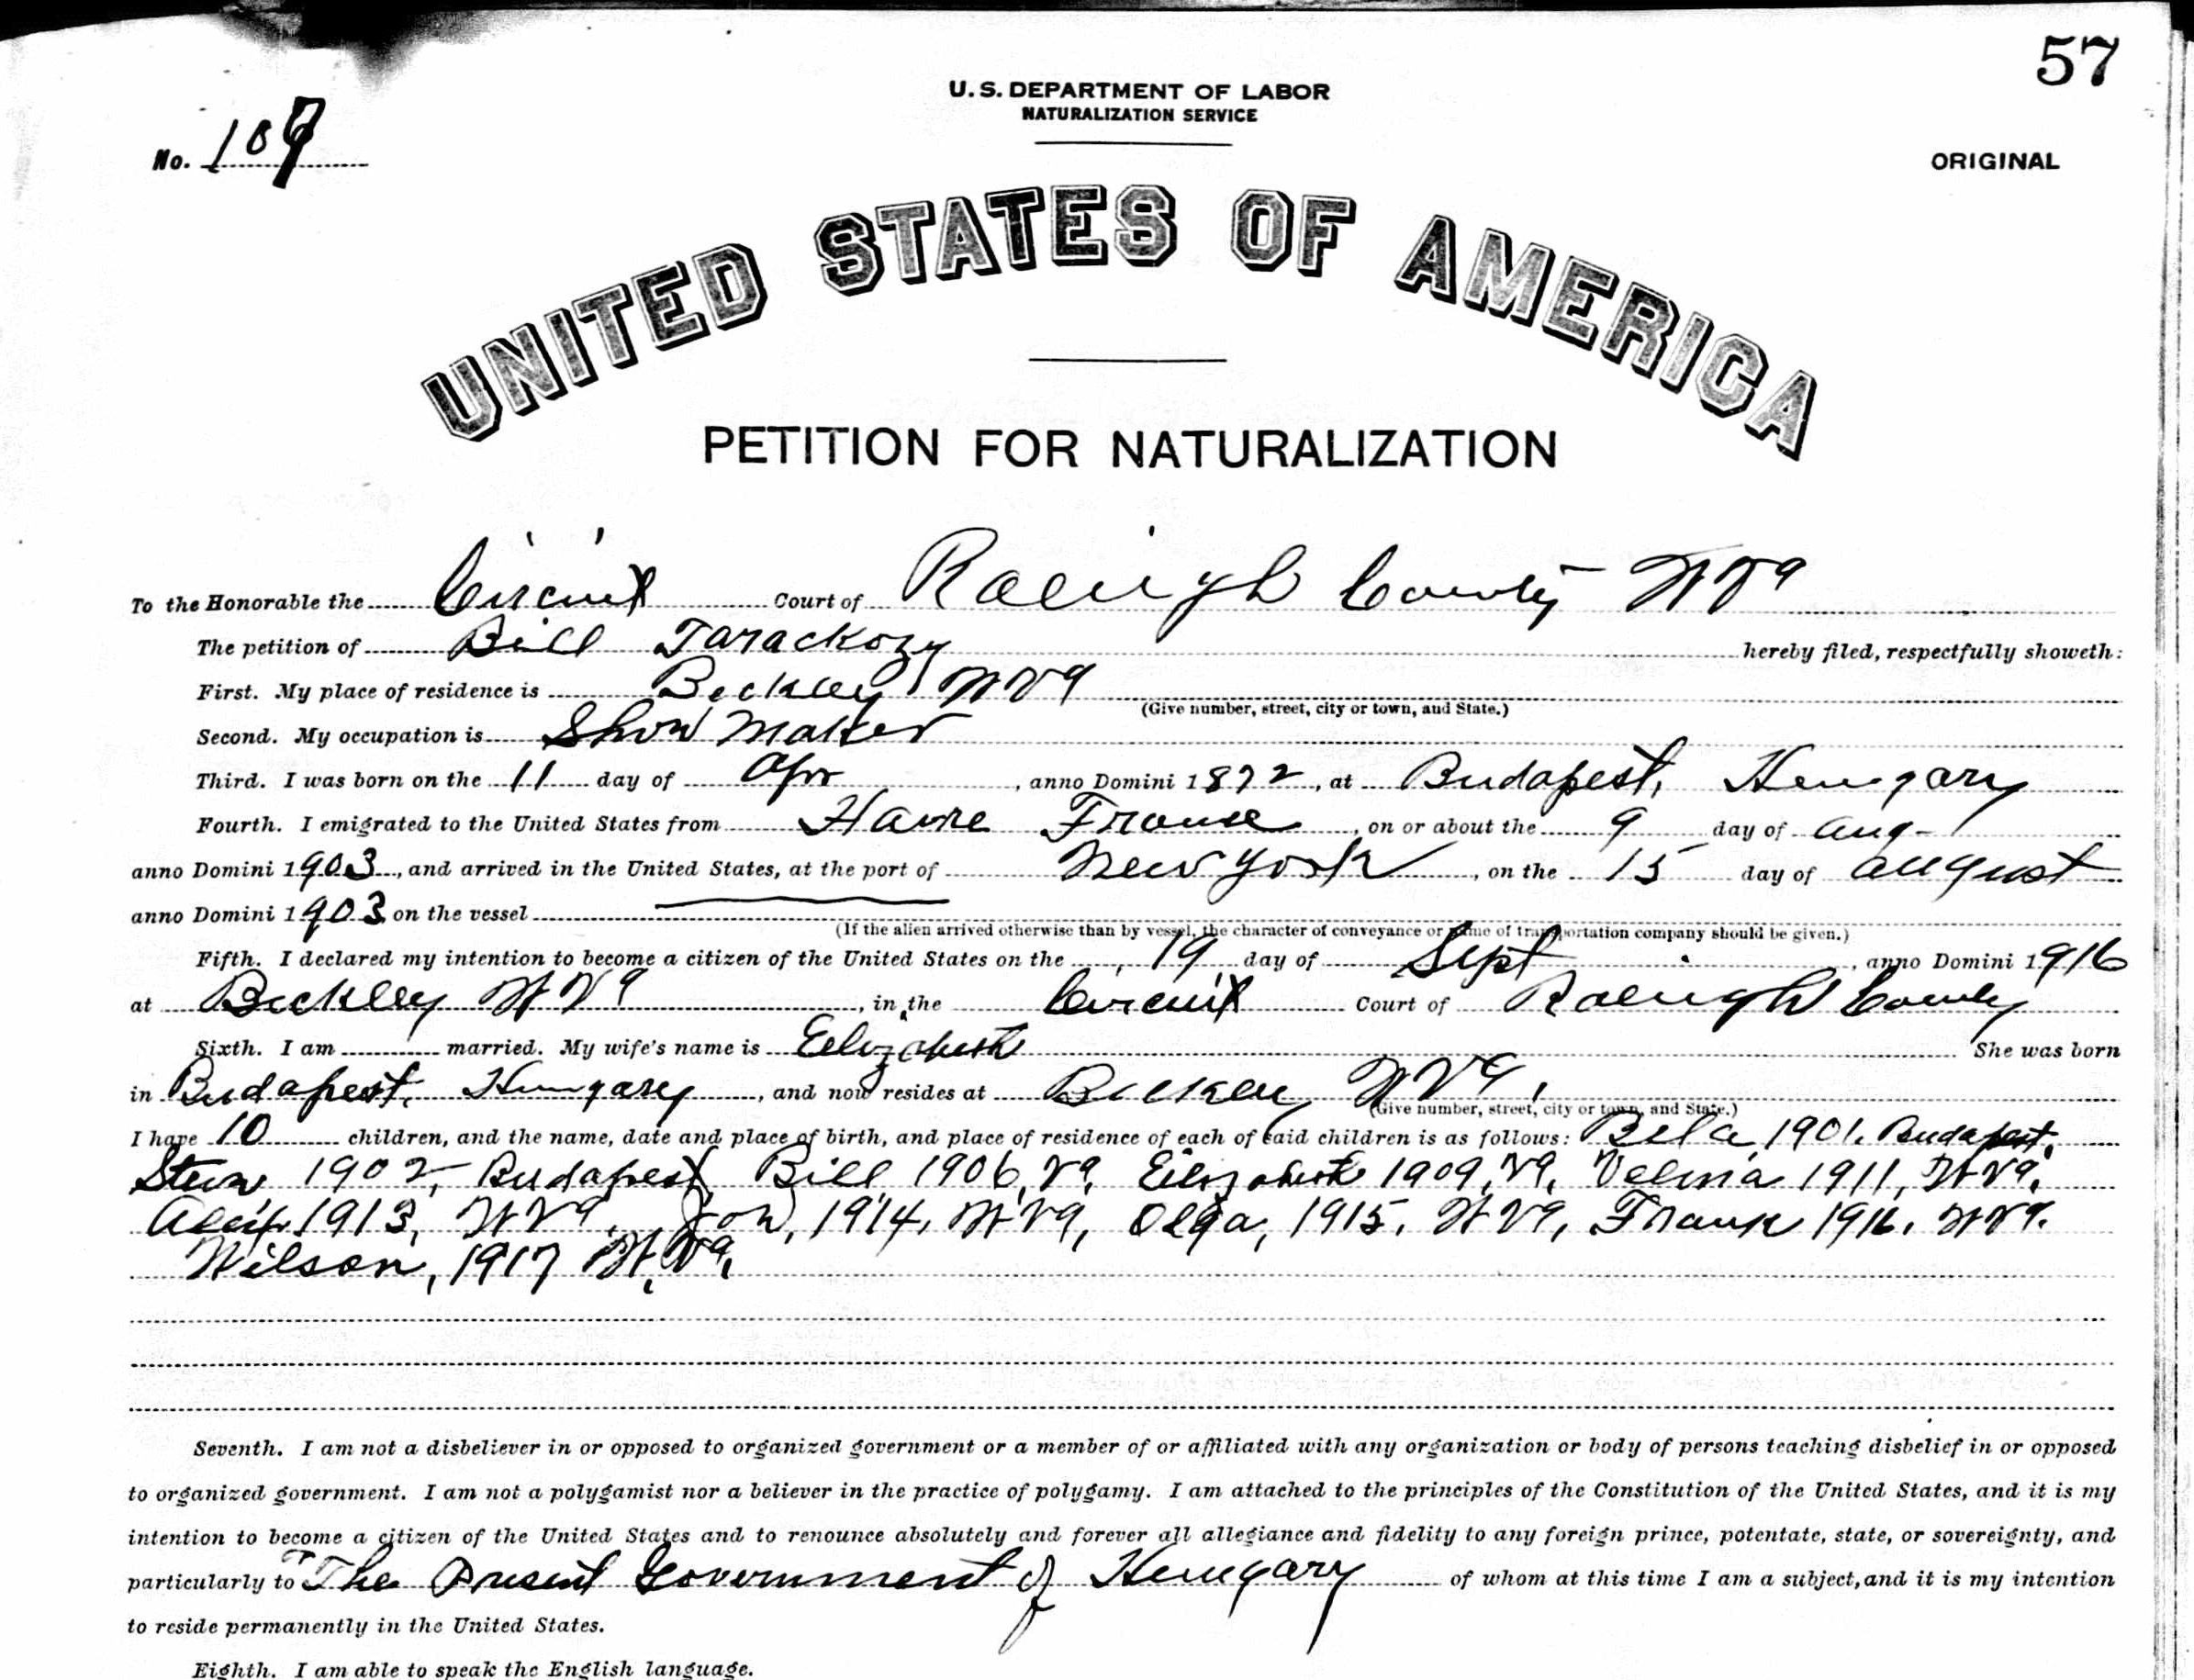 57
U. S. DEPARTMENT OF LABOR
NATURALIZATION SERVICE
No. 107
ORIGINAL
UNITED STATES OF AMERICA
PETITION FOR NATURALIZATION
To the Honorable the Circuit Court of Raleigh County W Va
The petition of Bill Tarackozy hereby filed, respectfully showeth:
First. My place of residence is Beckley W Va
(Give number, street, city or town, and State.)
Second. My occupation is Show Maker
Third. I was born on the 11 day of Apr, anno Domini 1872, at Budapest, Hungary
Fourth. I emigrated to the United States from Havre France, on or about the 9 day of Aug-
anno Domini 1903, and arrived in the United States, at the port of New York, on the 15 day of August
anno Domini 1903 on the vessel
(If the alien arrived otherwise than by vessel, the character of conveyance or name of transportation company should be given.)
Fifth. I declared my intention to become a citizen of the United States on the 19 day of Sept, anno Domini 1916
at Beckley W Va, in the Circuit Court of Raleigh County
Sixth. I am married. My wife's name is Elizabeth She was born
in Budapest, Hungary, and now resides at Beckley W Va.
(Give number, street, city or town, and State.)
I have 10 children, and the name, date and place of birth, and place of residence of each of said children is as follows: Bela, 1901. Budapest,
Steve 1902, Budapest, Bill 1906, Va, Elizabeth 1909, Va, Velma 1911, W Va,
1913, W Va, 1914, W Va, Olga, 1915, W Va, Frank 1916. W Va.
Wilson, 1917 W. Va,
Seventh. I am not a disbeliever in or opposed to organized government or a member of or affiliated with any organization or body of persons teaching disbelief in or opposed
to organized government. I am not a polygamist nor a believer in the practice of polygamy. I am attached to the principles of the Constitution of the United States, and it is my
intention to become a citizen of the United States and to renounce absolutely and forever all allegiance and fidelity to any foreign prince, potentate, state, or sovereignty, and
particularly to The Present Government of Hungary of whom at this time I am a subject, and it is my intention
to reside permanently in the United States.
Eighth. I am able to speak the English language.